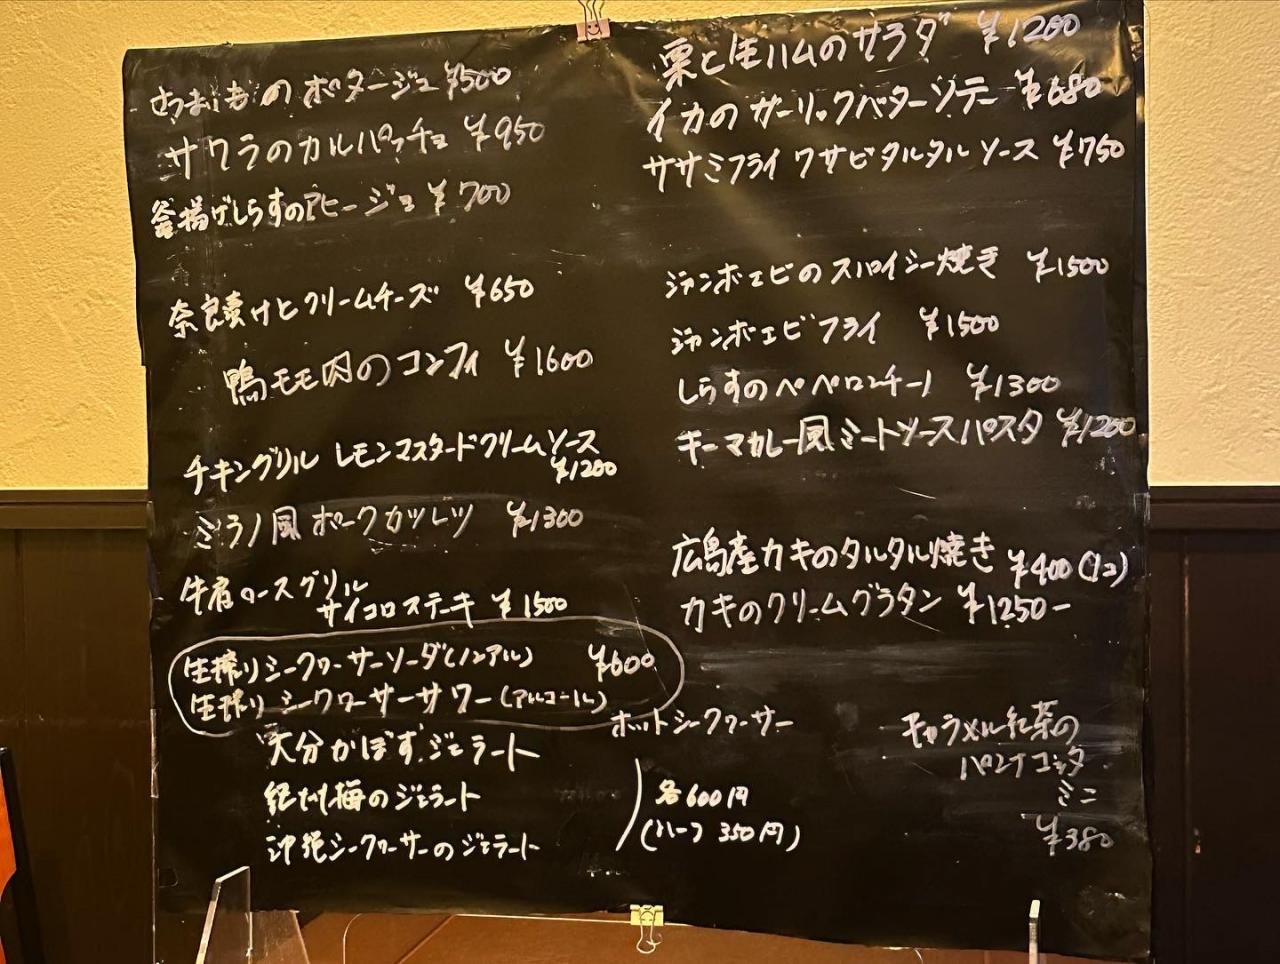 さつまいものポタージュ ¥500
サワラのカルパッチョ ¥950
釜揚げしらすのアヒージョ ¥700
奈良漬けとクリームチーズ ¥650
鴨モモ肉のコンフィ ¥1600
チキングリル レモンマスタードクリームソース
¥1200
ミラノ風ポークカツレツ ¥1300
牛肩ロースグリル
サイコロステーキ ¥1500
生搾りシークワーサーソーダ(ノンアル) ¥600
生搾りシークワーサーサワー(アルコール)
大分かぼすジェラート
紀州梅のジェラート
沖縄シークワーサーのジェラート
各600円
(ハーフ 350円)
栗と生ハムのサラダ ¥1200
イカのガーリックバターソテー ¥680
ササミフライ ワサビタルタルソース ¥750
ジャンボエビのスパイシー焼き ¥1500
ジャンボエビフライ ¥1500
しらすのペペロンチーノ ¥1300
キーマカレー風ミートソースパスタ ¥1200
広島産カキのタルタル焼き ¥400(1コ)
カキのクリームグラタン ¥1250-
ホットシークワーサー
キャラメル紅茶の
パンナコッタ
ミニ
¥380